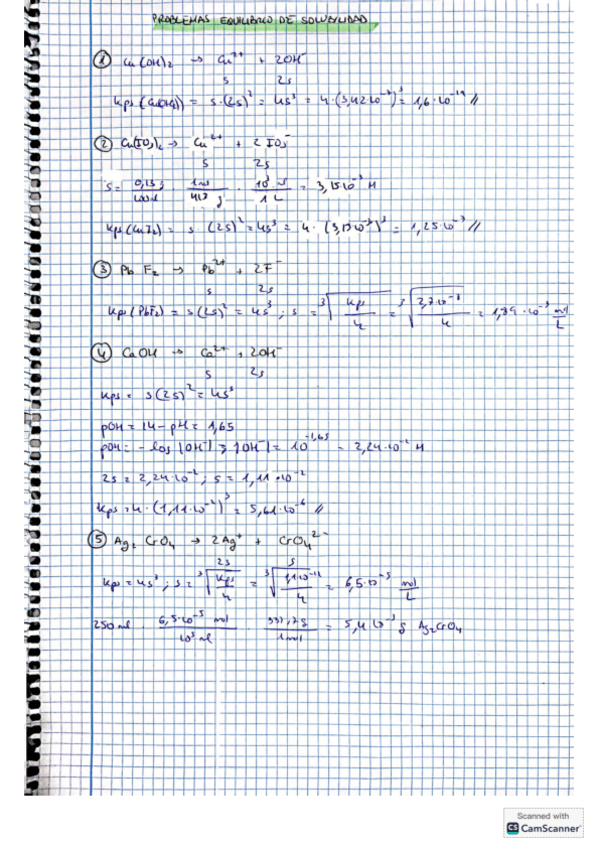 PROBLEMAS EQUILIBRIO DE SOLUBILIDAD
① Cu(OH)₂ → Cu²⁺ + 2OH⁻
s 2s
Kps (Cu(OH)₂) = s·(2s)² = 4s³ = 4·(3,42·10⁻⁷)³ = 1,6·10⁻¹⁹ //
② Cu(IO₃)₂ → Cu²⁺ + 2 IO₃⁻
s 2s
s = 0,13 g / 100 ml · 1 mol / 413 g · 10³ ml / 1 L = 3,15·10⁻³ M
Kps = s (2s)² = 4s³ = 4·(3,15·10⁻³)³ = 1,25·10⁻⁷ //
③ Pb F₂ → Pb²⁺ + 2F⁻
s 2s
Kps (PbF₂) = s(2s)² = 4s³ ; s = ³√(Kps / 4) = ³√(2,7·10⁻⁸ / 4) = 1,89·10⁻³ mol / L
④ CaOH → Ca²⁺ + 2OH⁻
s 2s
Kps = s(2s)² = 4s³
pOH = 14 - pH = 1,65
pOH = - log |OH⁻| ; |OH⁻| = 10⁻¹·⁶⁵ = 2,24·10⁻² M
2s = 2,24·10⁻² ; s = 1,11·10⁻²
Kps = 4·(1,11·10⁻²)³ = 5,61·10⁻⁶ //
⑤ Ag₂ CrO₄ → 2Ag⁺ + CrO₄²⁻
2s s
Kps = 4s³ ; s = ³√(Kps / 4) = ³√(1,1·10⁻¹² / 4) = 6,5·10⁻⁵ mol / L
250 ml · 6,5·10⁻⁵ mol / 10³ ml · 331,7 g / 1 mol = 5,4·10⁻³ g Ag₂CrO₄
Scanned with
CS CamScanner